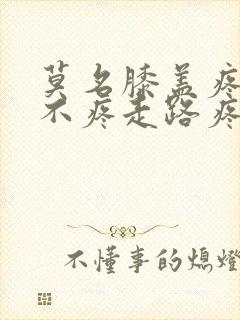 莫名膝盖疼
不疼走路疼
不懂事的熄燈